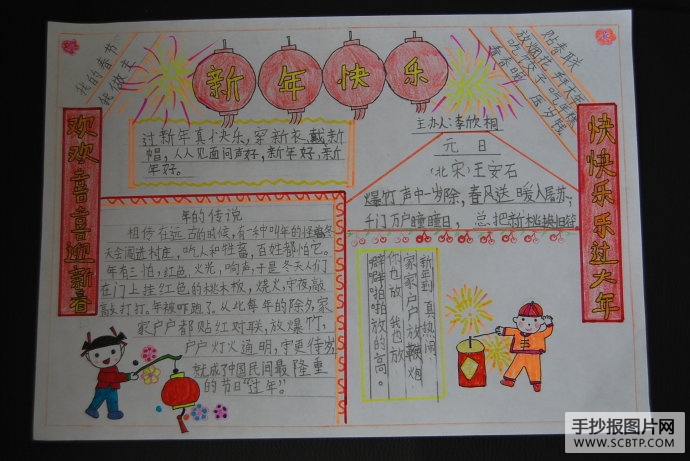 我的春节
我做主
新年快乐
贴春联
放烟花 拜大年
吃饺子 吃年糕
看春晚 压岁钱
欢欢喜喜迎新暑
快快乐乐过大年
过新年真快乐，穿新衣，戴新
帽，人人见面问声好，新年好，新
年好。
主办人：李欣桐
元日
(北宋)王安石
爆竹声中一岁除，春风送暖入屠苏；
千门万户曈曈日，总把新桃换旧符
年的传说
相传在远古的时候，有一种叫年的怪兽冬
天会闯进村庄，吃人和牲畜，百姓都怕它。
年有三怕，红色，火光，响声，于是冬天人们
在门上挂红色的桃木板，烧火，守夜，敲
敲打打。年被吓跑了。从此每年的除夕，家
家户户都贴红对联，放爆竹，
户户灯火通明，守更待岁
就成了中国民间最隆重
的节日"过年"。
新年到 真热闹
家家户户放鞭炮
你也放 我也放
噼噼啪啪放的高。
手抄报图片网
WWW.SCBTP.COM